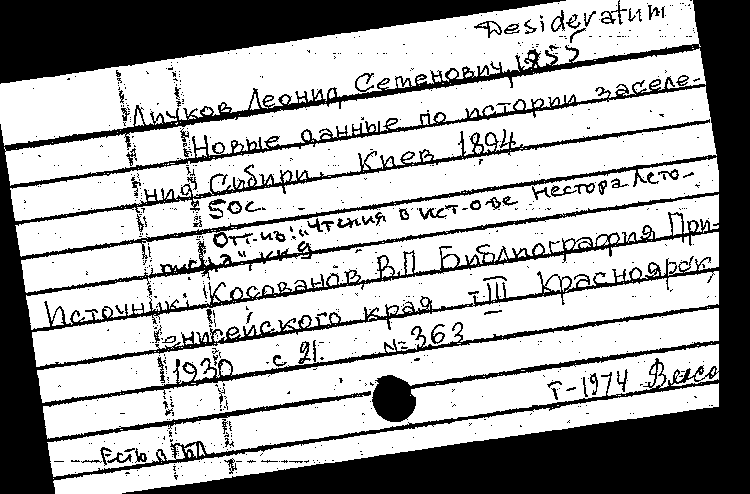 Desideratum
Личков, Леонид Семенович, 1855
Новые данные по истории заселе-
ния Сибири. Киев 1894
50с.
Отт.из: „Чтения в ист-о-ве Нестора Лето-
писца", кн.9
Источник: Косованов, В.П Библиография При-
енисейского края т III Красноярск,
1930 с 21. №363
I-1974
Есть в ГБЛ